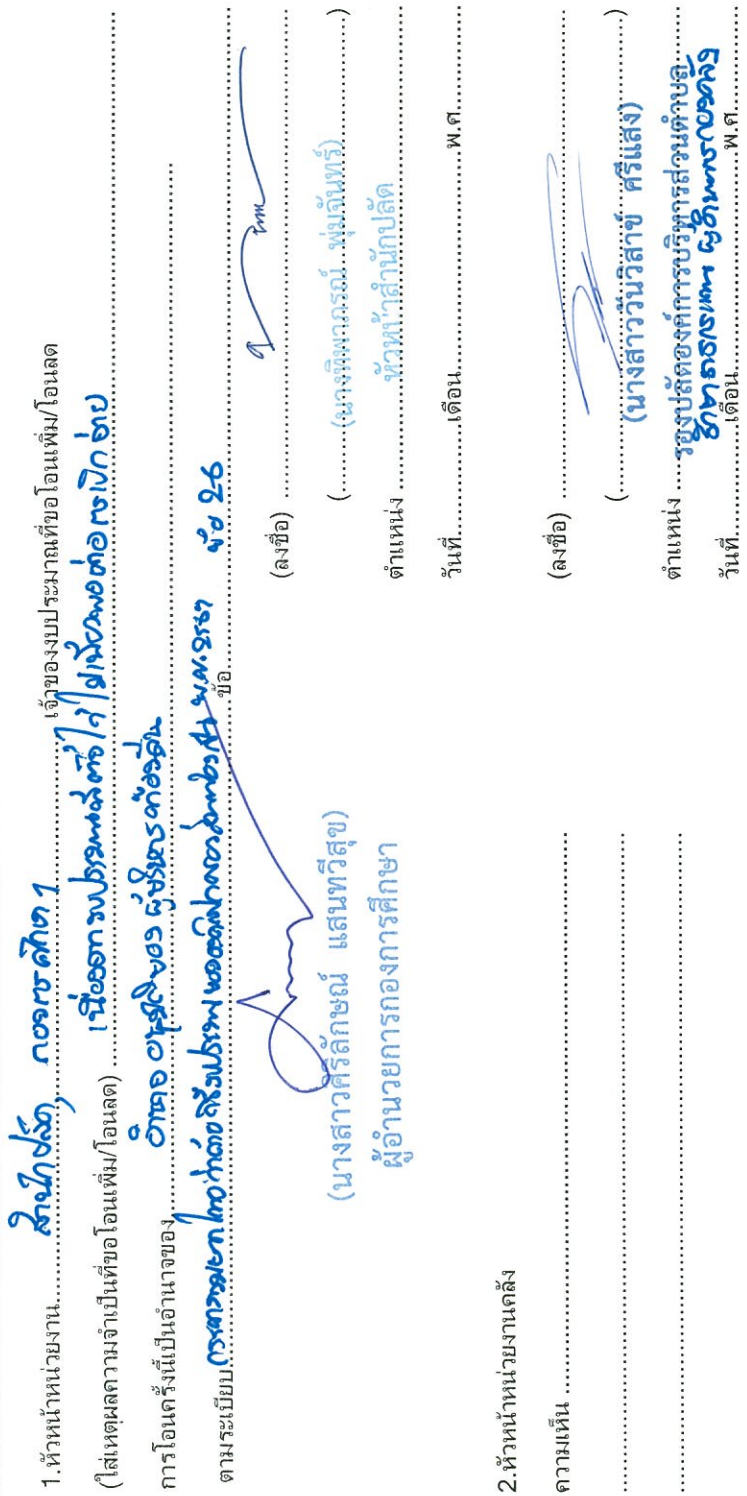 1.หัวหน้าหน่วยงาน......สำนักปลัด, กองการศึกษาฯ......เจ้าของงบประมาณที่ขอโอนเพิ่ม/โอนลด
(ใส่เหตุผลความจำเป็นที่ขอโอนเพิ่ม/โอนลด) ......เนื่องจาก งบประมาณที่ตั้งไว้ ไม่เพียงพอต่อการเบิกจ่าย......
การโอนครั้งนี้เป็นอำนาจของ......อำนาจ อนุมัติของ ผู้บริหารท้องถิ่น......
ตามระเบียบ......กระทรวงมหาดไทยว่าด้วยวิธีงบประมาณขององค์กรปกครองส่วนท้องถิ่น พ.ศ.2563......ข้อ...... ข้อ 26
(ลงชื่อ) ......
(......(นางทิพาภรณ์ พุ่มจันทร์)......)
ตำแหน่ง ......หัวหน้าสำนักปลัด......
วันที่............เดือน............พ.ศ.......
(นางสาวศิริลักษณ์ แสนทวีสุข)
ผู้อำนวยการกองการศึกษา
2.หัวหน้าหน่วยงานคลัง
ความเห็น ......
(ลงชื่อ) ......
(......(นางสาววันวิสาข์ ศรีแสง)......)
ตำแหน่ง ......รองปลัดองค์การบริหารส่วนตำบล
รักษาราชการแทน ผู้อำนวยการกองคลัง
วันที่............เดือน............พ.ศ.......